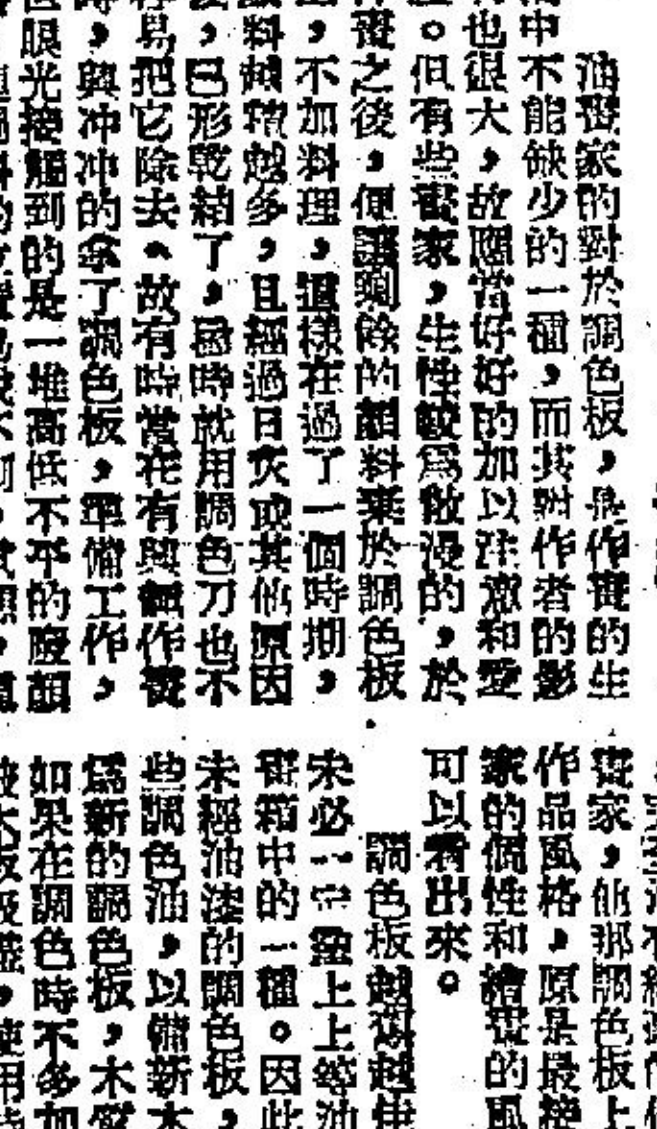 油畫家的對於調色板，是作畫的生
中不能缺少的一種，而其對作者的影
也很大，故應當好好的加以注意和愛
。但有些畫家，生性較為散漫的，於
畫之後，便讓剩餘的顏料棄於調色板
，不加料理，這樣在過了一個時期，
料越積越多，且經過日炙或其他原因
，已形乾結了，屆時就用調色刀也不
易把它除去。故有時當在有興輒作畫
，興冲冲的拿了調色板，準備工作，
眼光接觸到的是一堆高低不平的廢顏
畫家，他那調色板上
作品風格，原是最接
家的個性和繪畫的風
可以看出來。
調色板越舊越佳
未必一定
上上等油
畫箱中的一種。因此
未經油漆的調色板，
些調色油，以備新木
為新的調色板，木質
如果在調色時不多加